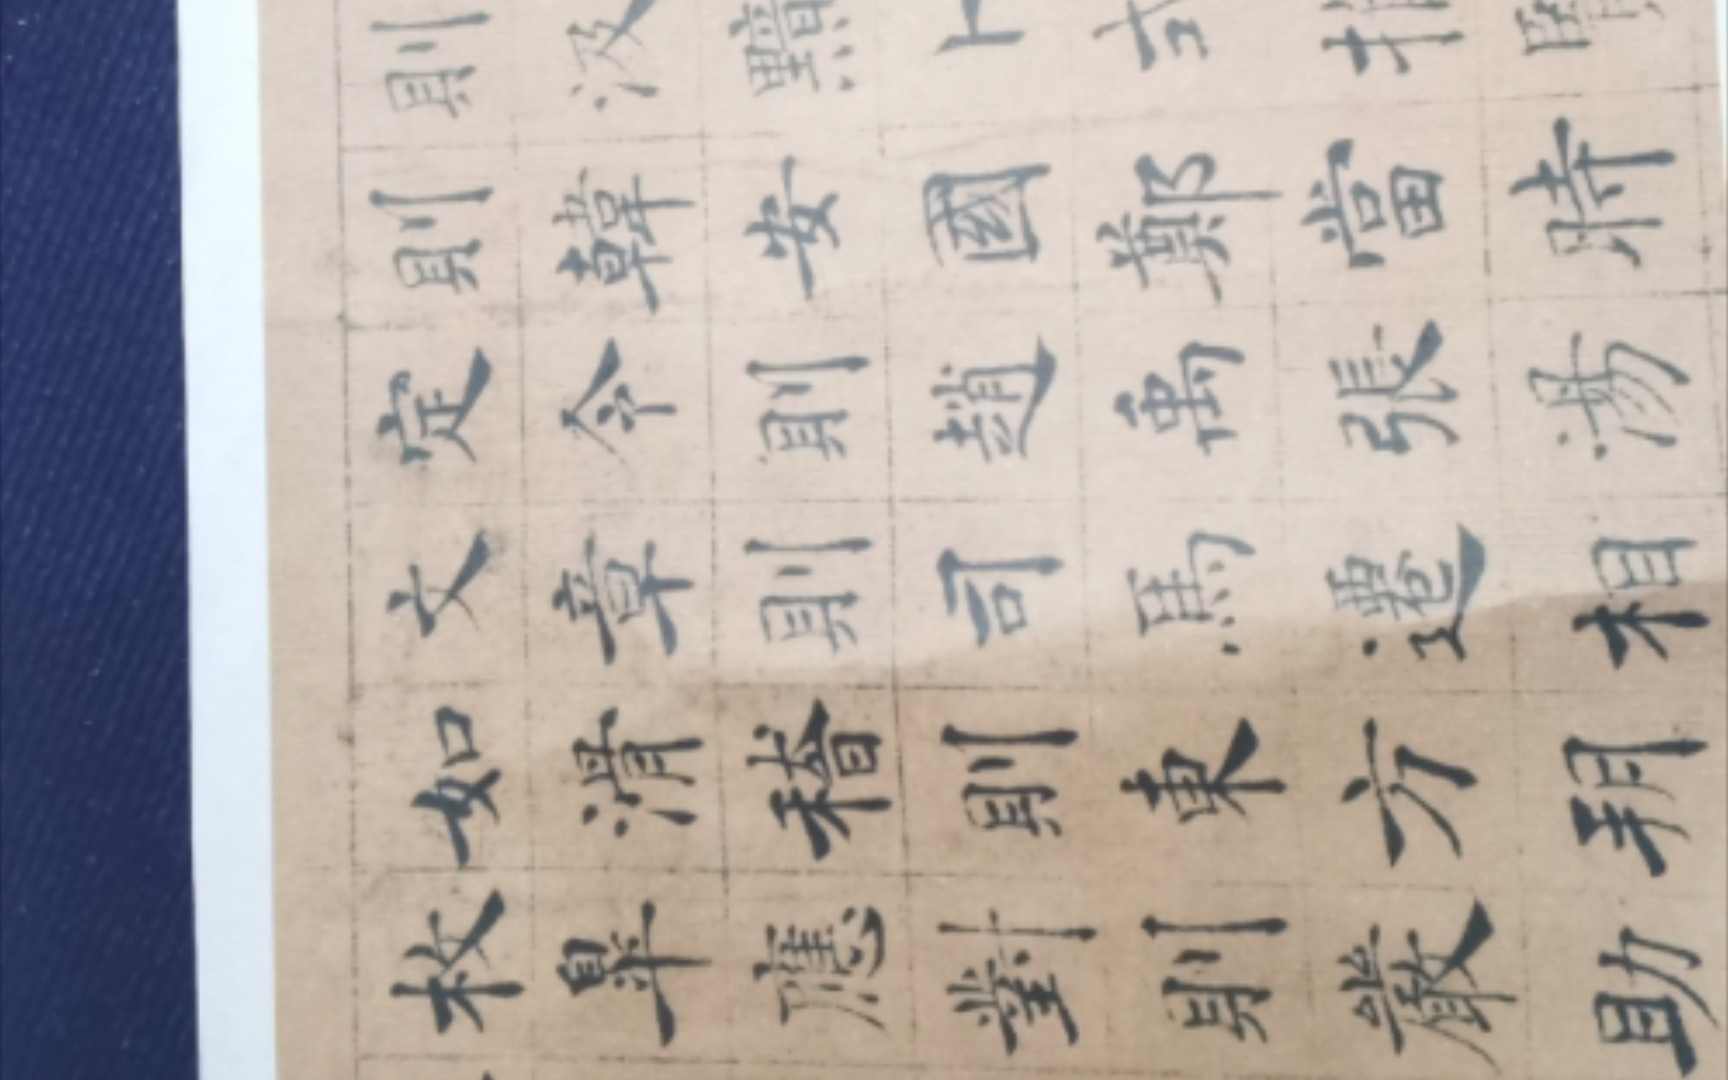 則汲黯卜式推賢
則韓安國鄭當時
定令則趙禹張湯
文章則司馬遷相
如滑稽則東方朔
枚皋應對則嚴助